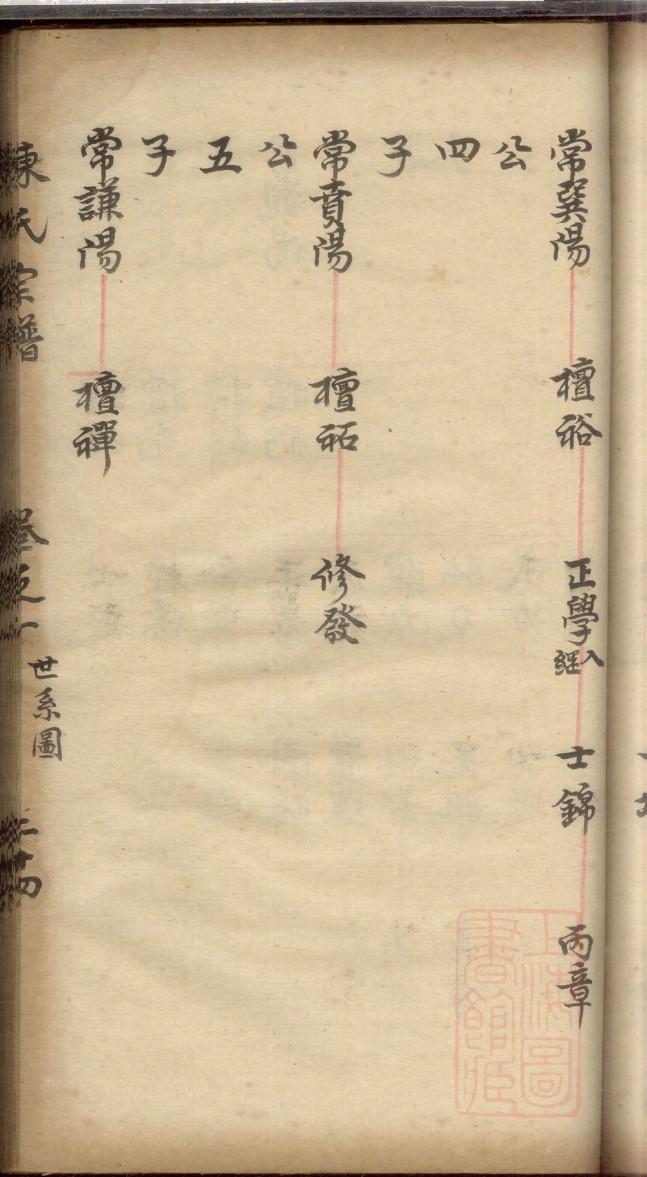 常巽陽 檀裕 正學入繼 士錦 丙章
公四子
常賁陽 檀祏 修發
公五子
常謙陽 檀禪
世系圖
陳氏宗譜 卷之一
上海圖書館臧